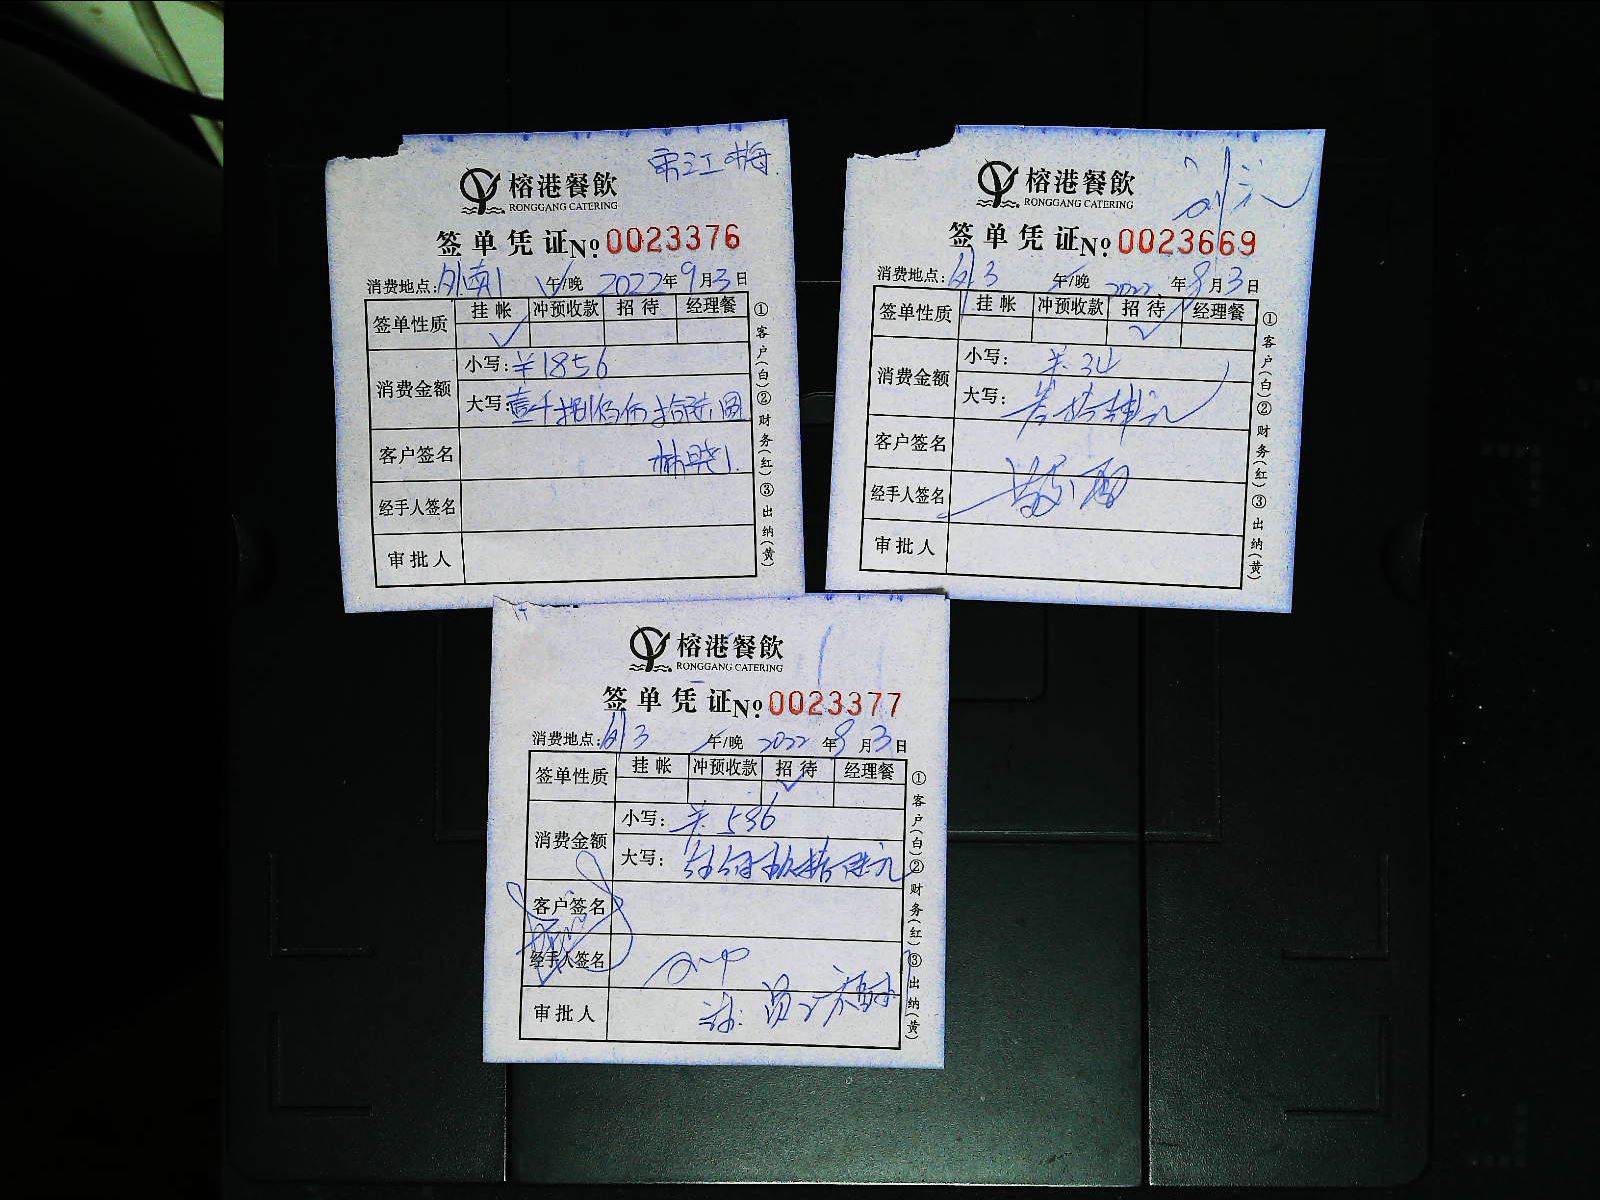 宋江梅
榕港餐飲
RONGGANG CATERING
签单凭证 No 0023376
消费地点: 外南1 午/晚 2022年9月3日
签单性质 挂帐 冲预收款 招待 经理餐
✓
消费金额 小写: ¥1856
大写: 壹千捌佰伍拾陆圆
客户签名 林晓
经手人签名
审批人
①客户(白)②财务(红)③出纳(黄)
榕港餐飲
RONGGANG CATERING
签单凭证 No 0023669
消费地点: 外3 午/晚 2022年9月3日
签单性质 挂帐 冲预收款 招待 经理餐
✓
消费金额 小写: ¥34
大写:
客户签名
经手人签名
审批人
①客户(白)②财务(红)③出纳(黄)
榕港餐飲
RONGGANG CATERING
签单凭证 No 0023377
消费地点: 外3 午/晚 2022年9月3日
签单性质 挂帐 冲预收款 招待 经理餐
✓
消费金额 小写:
大写:
客户签名
经手人签名
审批人
①客户(白)②财务(红)③出纳(黄)